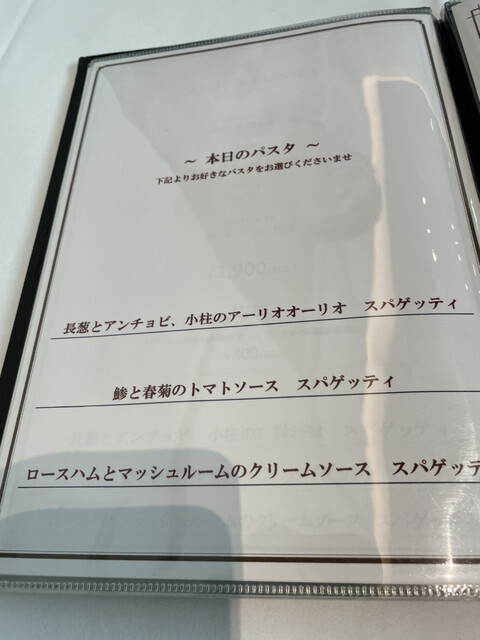 ～ 本日のパスタ ～
下記よりお好きなパスタをお選びくださいませ
長葱とアンチョビ、小柱のアーリオオーリオ　スパゲッティ
鯵と春菊のトマトソース　スパゲッティ
ロースハムとマッシュルームのクリームソース　スパゲッテ